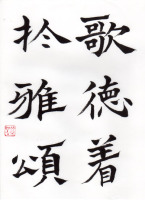 歌徳着
扵雅頌